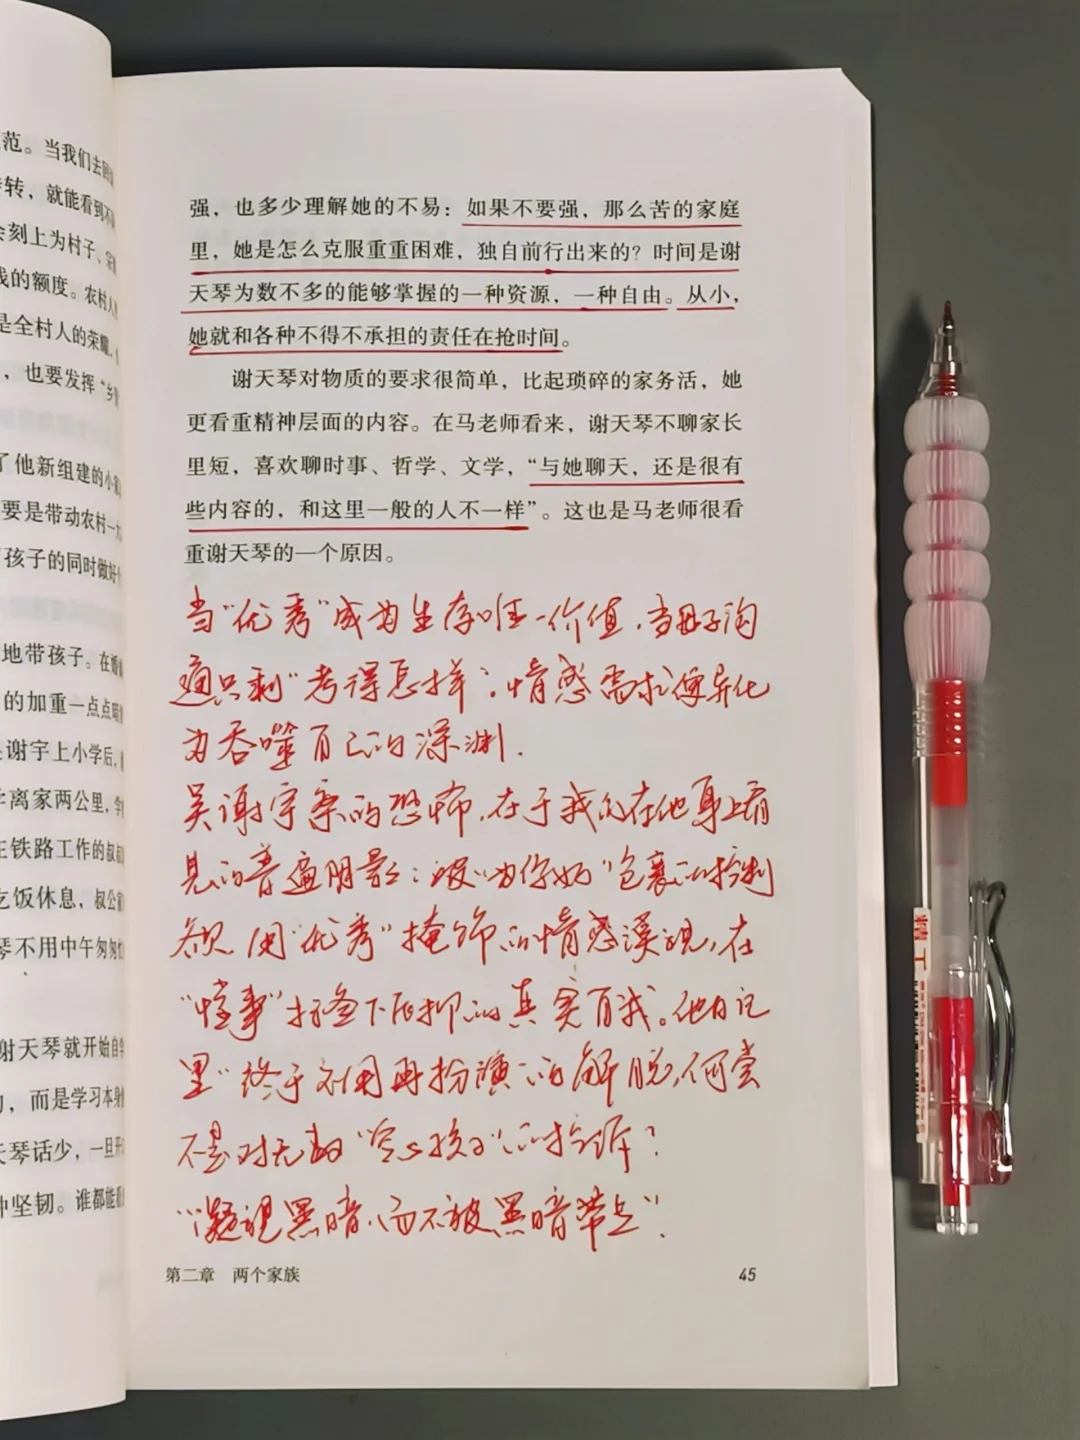 范。当我们去回
转，就能看到不
会刻上为村子、宗
线的额度。农村人
是全村人的荣耀，
，也要发挥“乡
了他新组建的小家
要是带动农村一大
孩子的同时做好
地带孩子。在婚
的加重一点点暗
是谢宇上小学后，
学离家两公里，学
在铁路工作的叔叔
吃饭休息，叔公家
琴不用中午匆匆忙
谢天琴就开始自学
，而是学习本身
天琴话少，一旦开
种坚韧。谁都能看
强，也多少理解她的不易：如果不要强，那么苦的家庭
里，她是怎么克服重重困难，独自前行出来的？时间是谢
天琴为数不多的能够掌握的一种资源，一种自由。从小，
她就和各种不得不承担的责任在抢时间。
谢天琴对物质的要求很简单，比起琐碎的家务活，她
更看重精神层面的内容。在马老师看来，谢天琴不聊家长
里短，喜欢聊时事、哲学、文学，“与她聊天，还是很有
些内容的，和这里一般的人不一样”。这也是马老师很看
重谢天琴的一个原因。
当“优秀”成为生存唯一价值，当母子沟
通只剩“考得怎样”，情感需求便异化
为吞噬自己的深渊.
吴谢宇案的恐怖，在于我们在他身上看
见的普遍阴影：被“为你好”包裹的控制
欲，用“优秀”掩饰的情感漠视，在
“懂事”标签下压抑的真实自我。他日记
里“终于不用再扮演”的解脱，何尝
不是对无数“空心孩子”的控诉？
“凝视黑暗，而不被黑暗带走”.
第二章 两个家族 45